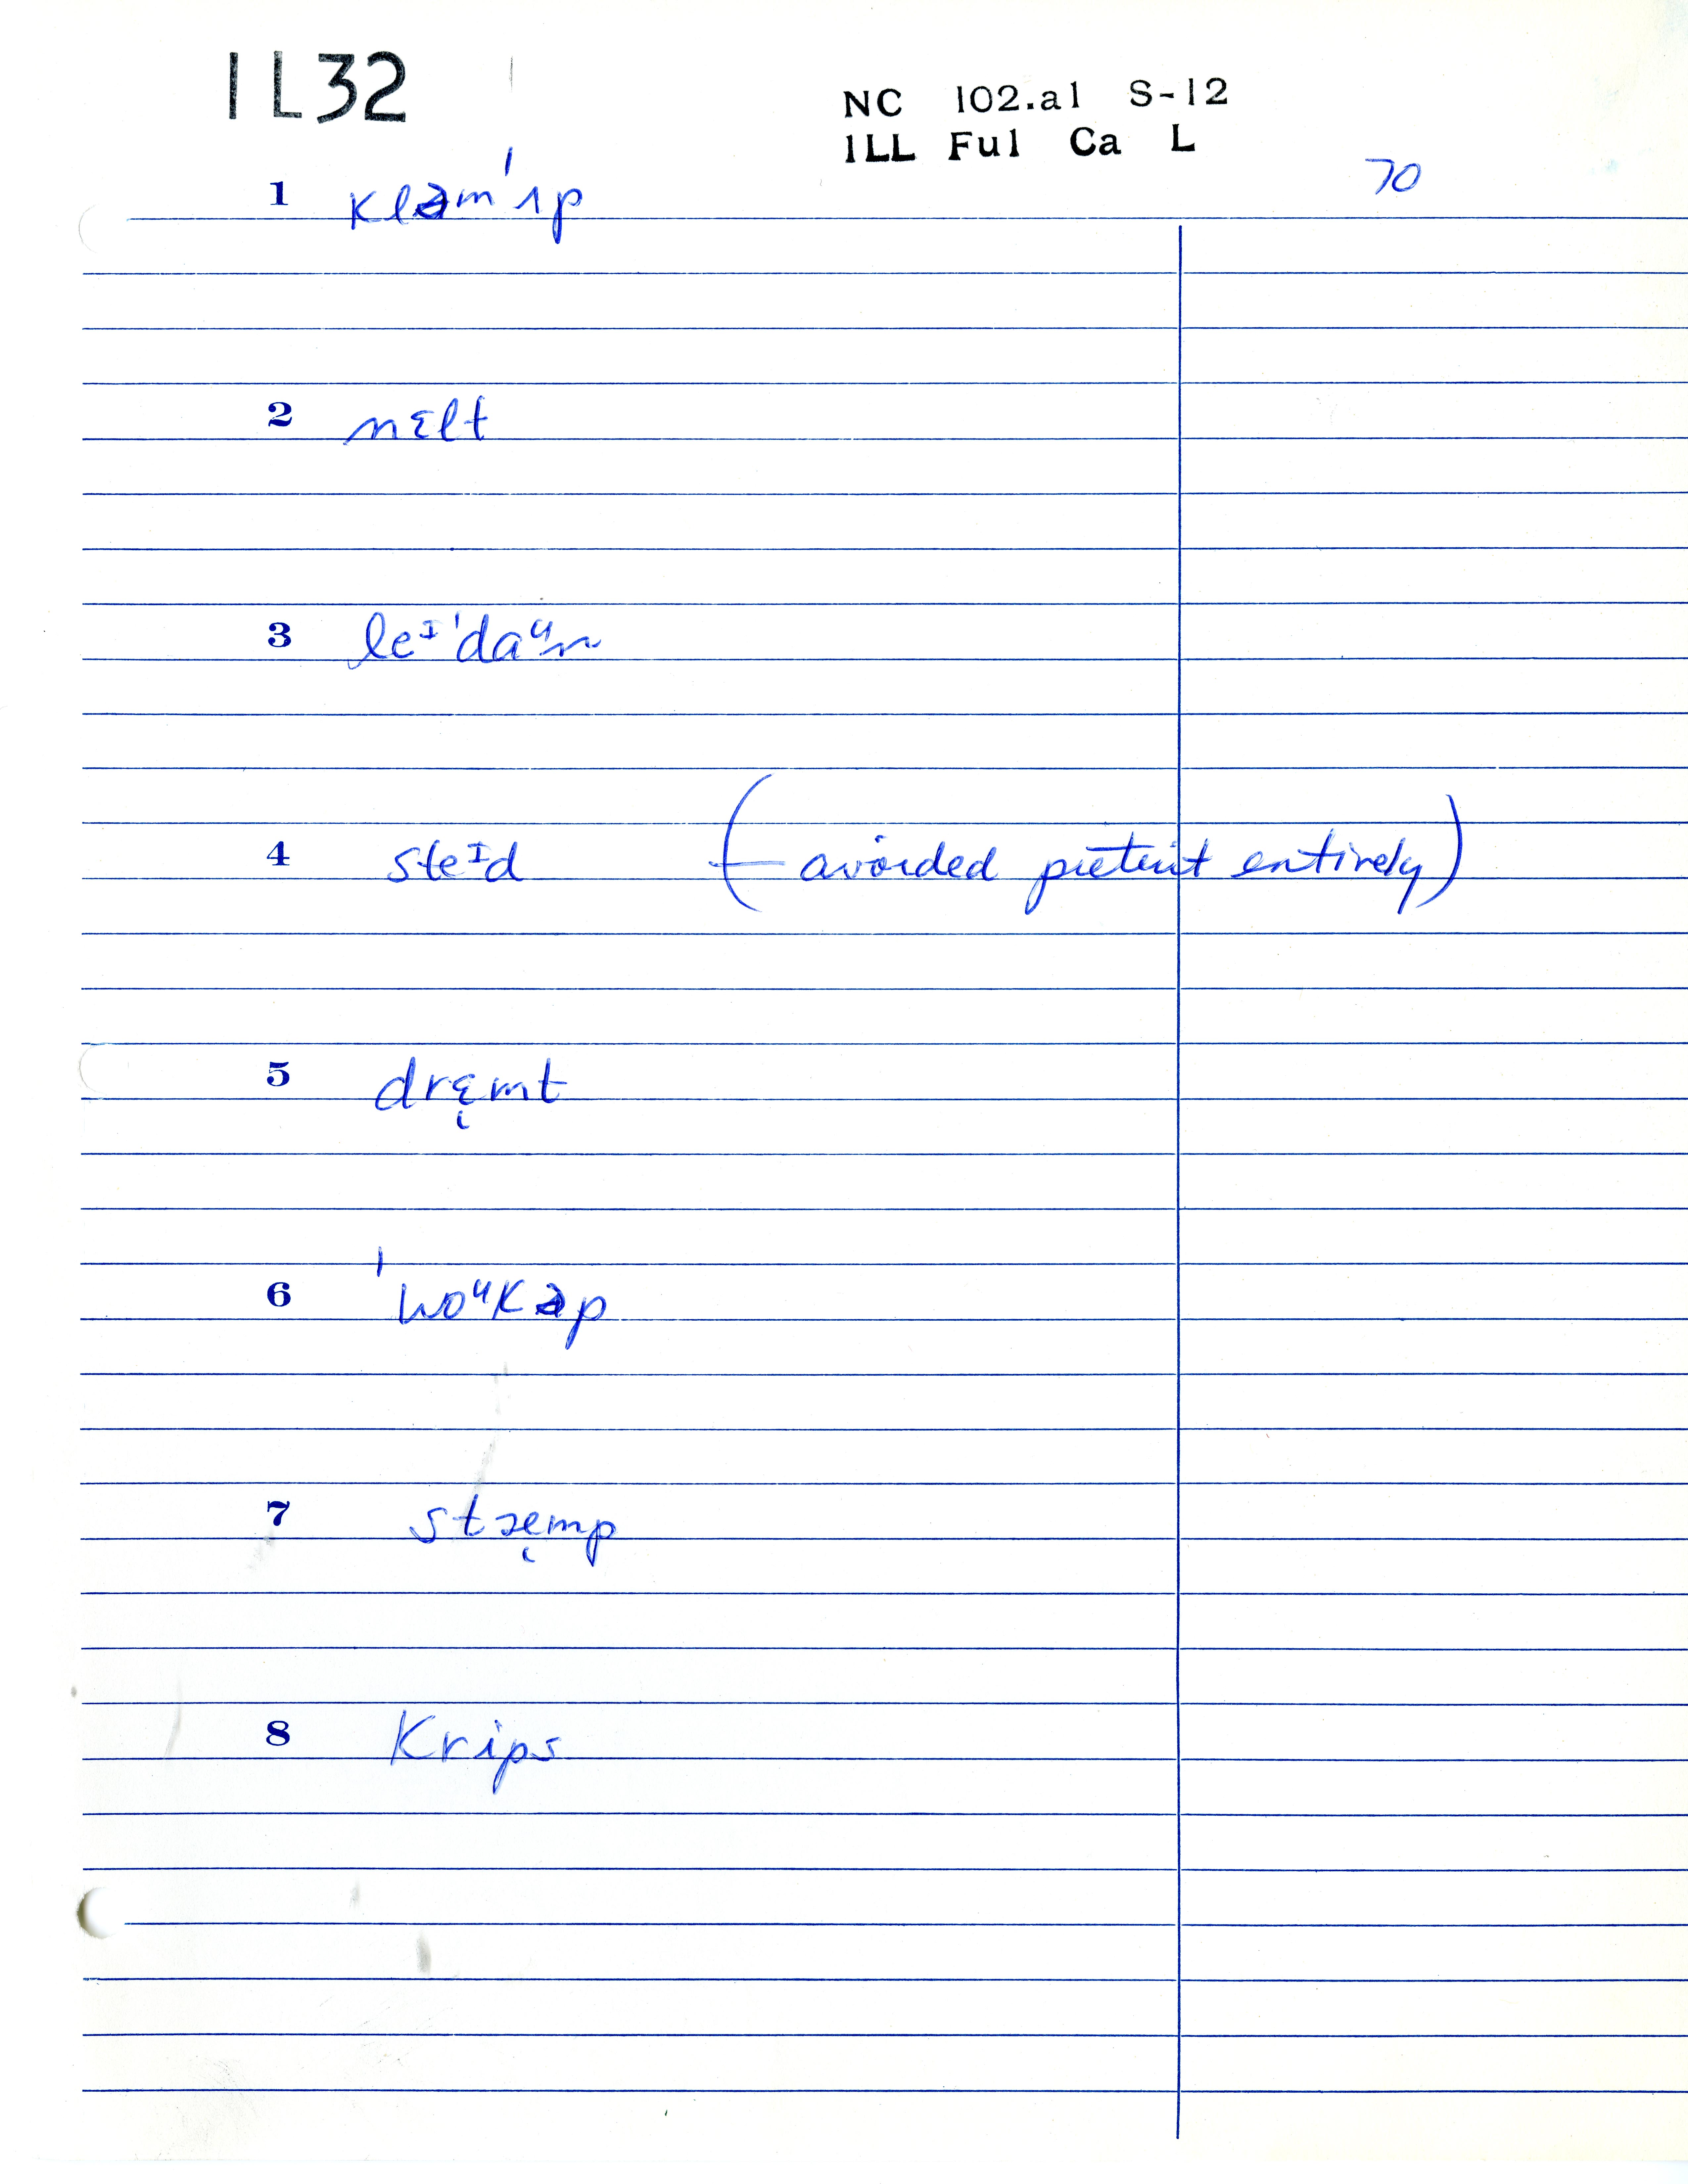 IL32
NC 102.a1 S-12
ILL Ful Ca L
70
1 kləm'ʌp
2 nɛlt
3 leᴵ'daᶷn
4 steᴵd (— avoided preterit entirely)
5 drɛ̨mt
6 'woᶷkəp
7 stæ̨mp
8 krips